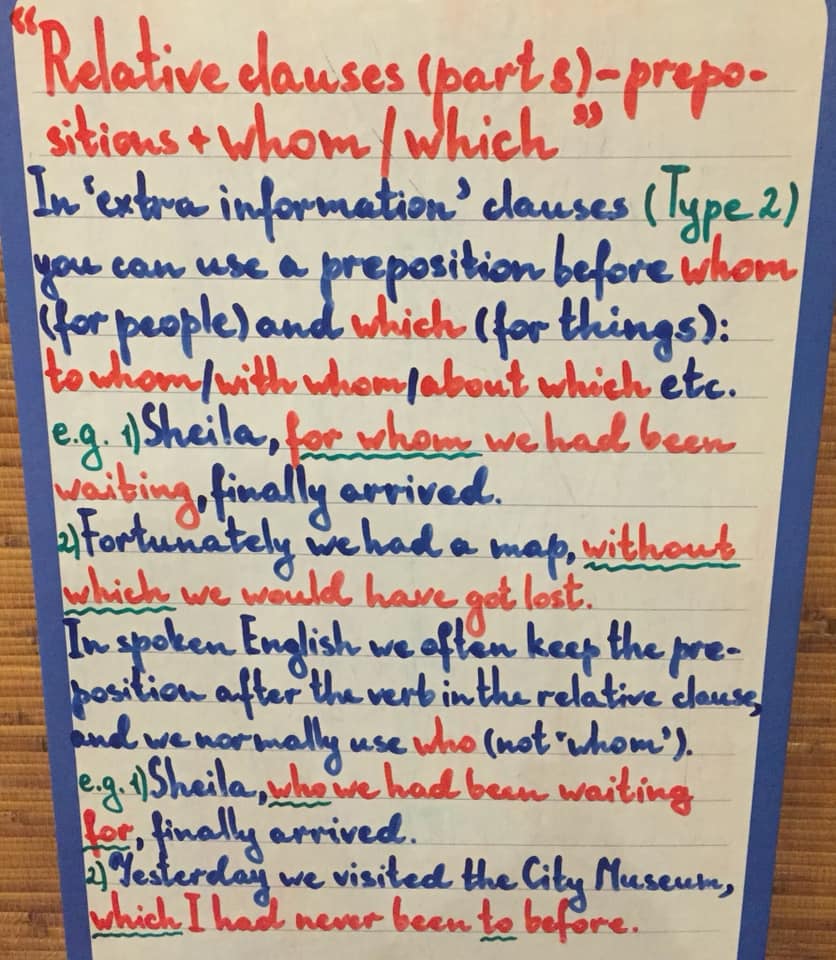 “Relative clauses (part 8)-prepo-
sitions + whom/which”
In ‘extra information’ clauses (Type 2)
you can use a preposition before whom
(for people) and which (for things):
to whom/with whom/about which etc.
e.g. 1) Sheila, for whom we had been
waiting, finally arrived.
2) Fortunately we had a map, without
which we would have got lost.
In spoken English we often keep the pre-
position after the verb in the relative clause,
and we normally use who (not ‘whom’).
e.g. 1) Sheila, who we had been waiting
for, finally arrived.
2) Yesterday we visited the City Museum,
which I had never been to before.